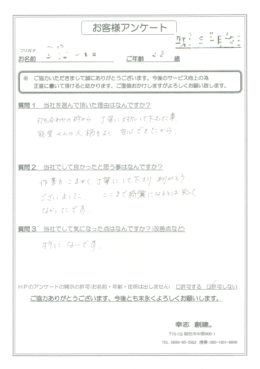 お客様アンケート
フリガナ
お名前
ご年齢
歳
※ ご協力いただきまして誠にありがとうございます。今後のサービス向上の為
正直に書いて頂けると助かります。ご面倒おかけしますがよろしくお願い致します。
質問1 当社を選んで頂いた理由はなんですか?
打ち合わせの時から 丁寧に対応して下さった事
さんの人柄もよく 安心できたから
質問2 当社でして良かったと思う事はなんですか?
作業もこまかく 丁寧にして下さり ありがとう
ございました ここまで綺麗になるとは思って
なかったです。
質問3 当社でして気になった点はなんですか?(改善点など)
特に ないです。
HPのアンケートの掲示の許可(お名前・年齢・住所は出しません) □許可する □許可しない
ご協力ありがとうございます、今後とも末永くよろしくお願いします。
幸志 創建。